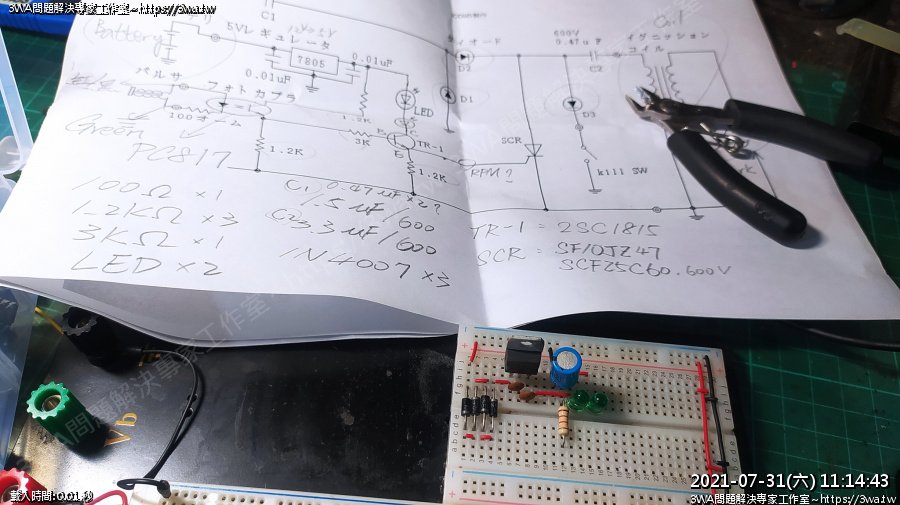 3WA問題解決專家工作室~https://3wa.tw
3WA問題解決專家工作室~https://3wa.tw
C1
Battery
5Vレギュレータ
7805
0.01uF
0.01uF
パルサ
フォトカプラ
100オーム
1.2K
1.2K
3K
LED
TR-1
1.2K
D2
D1
SCR
RPM?
600V
0.47uF
C2
D3
kill SW
イグニッション
コイル
Green
PC817
100Ω ×1
1.2KΩ ×3
3KΩ ×1
LED ×2
C1, 0.47uF×2?
1.5uF/600
C2 3.3uF/600
1N4007 ×3
TR-1 = 2SC1815
SCR = SF10JZ47
SCF25C60.600V
Vb
載入時間: 0.01 秒
2021-07-31(六) 11:14:43
3WA問題解決專家工作室~https://3wa.tw